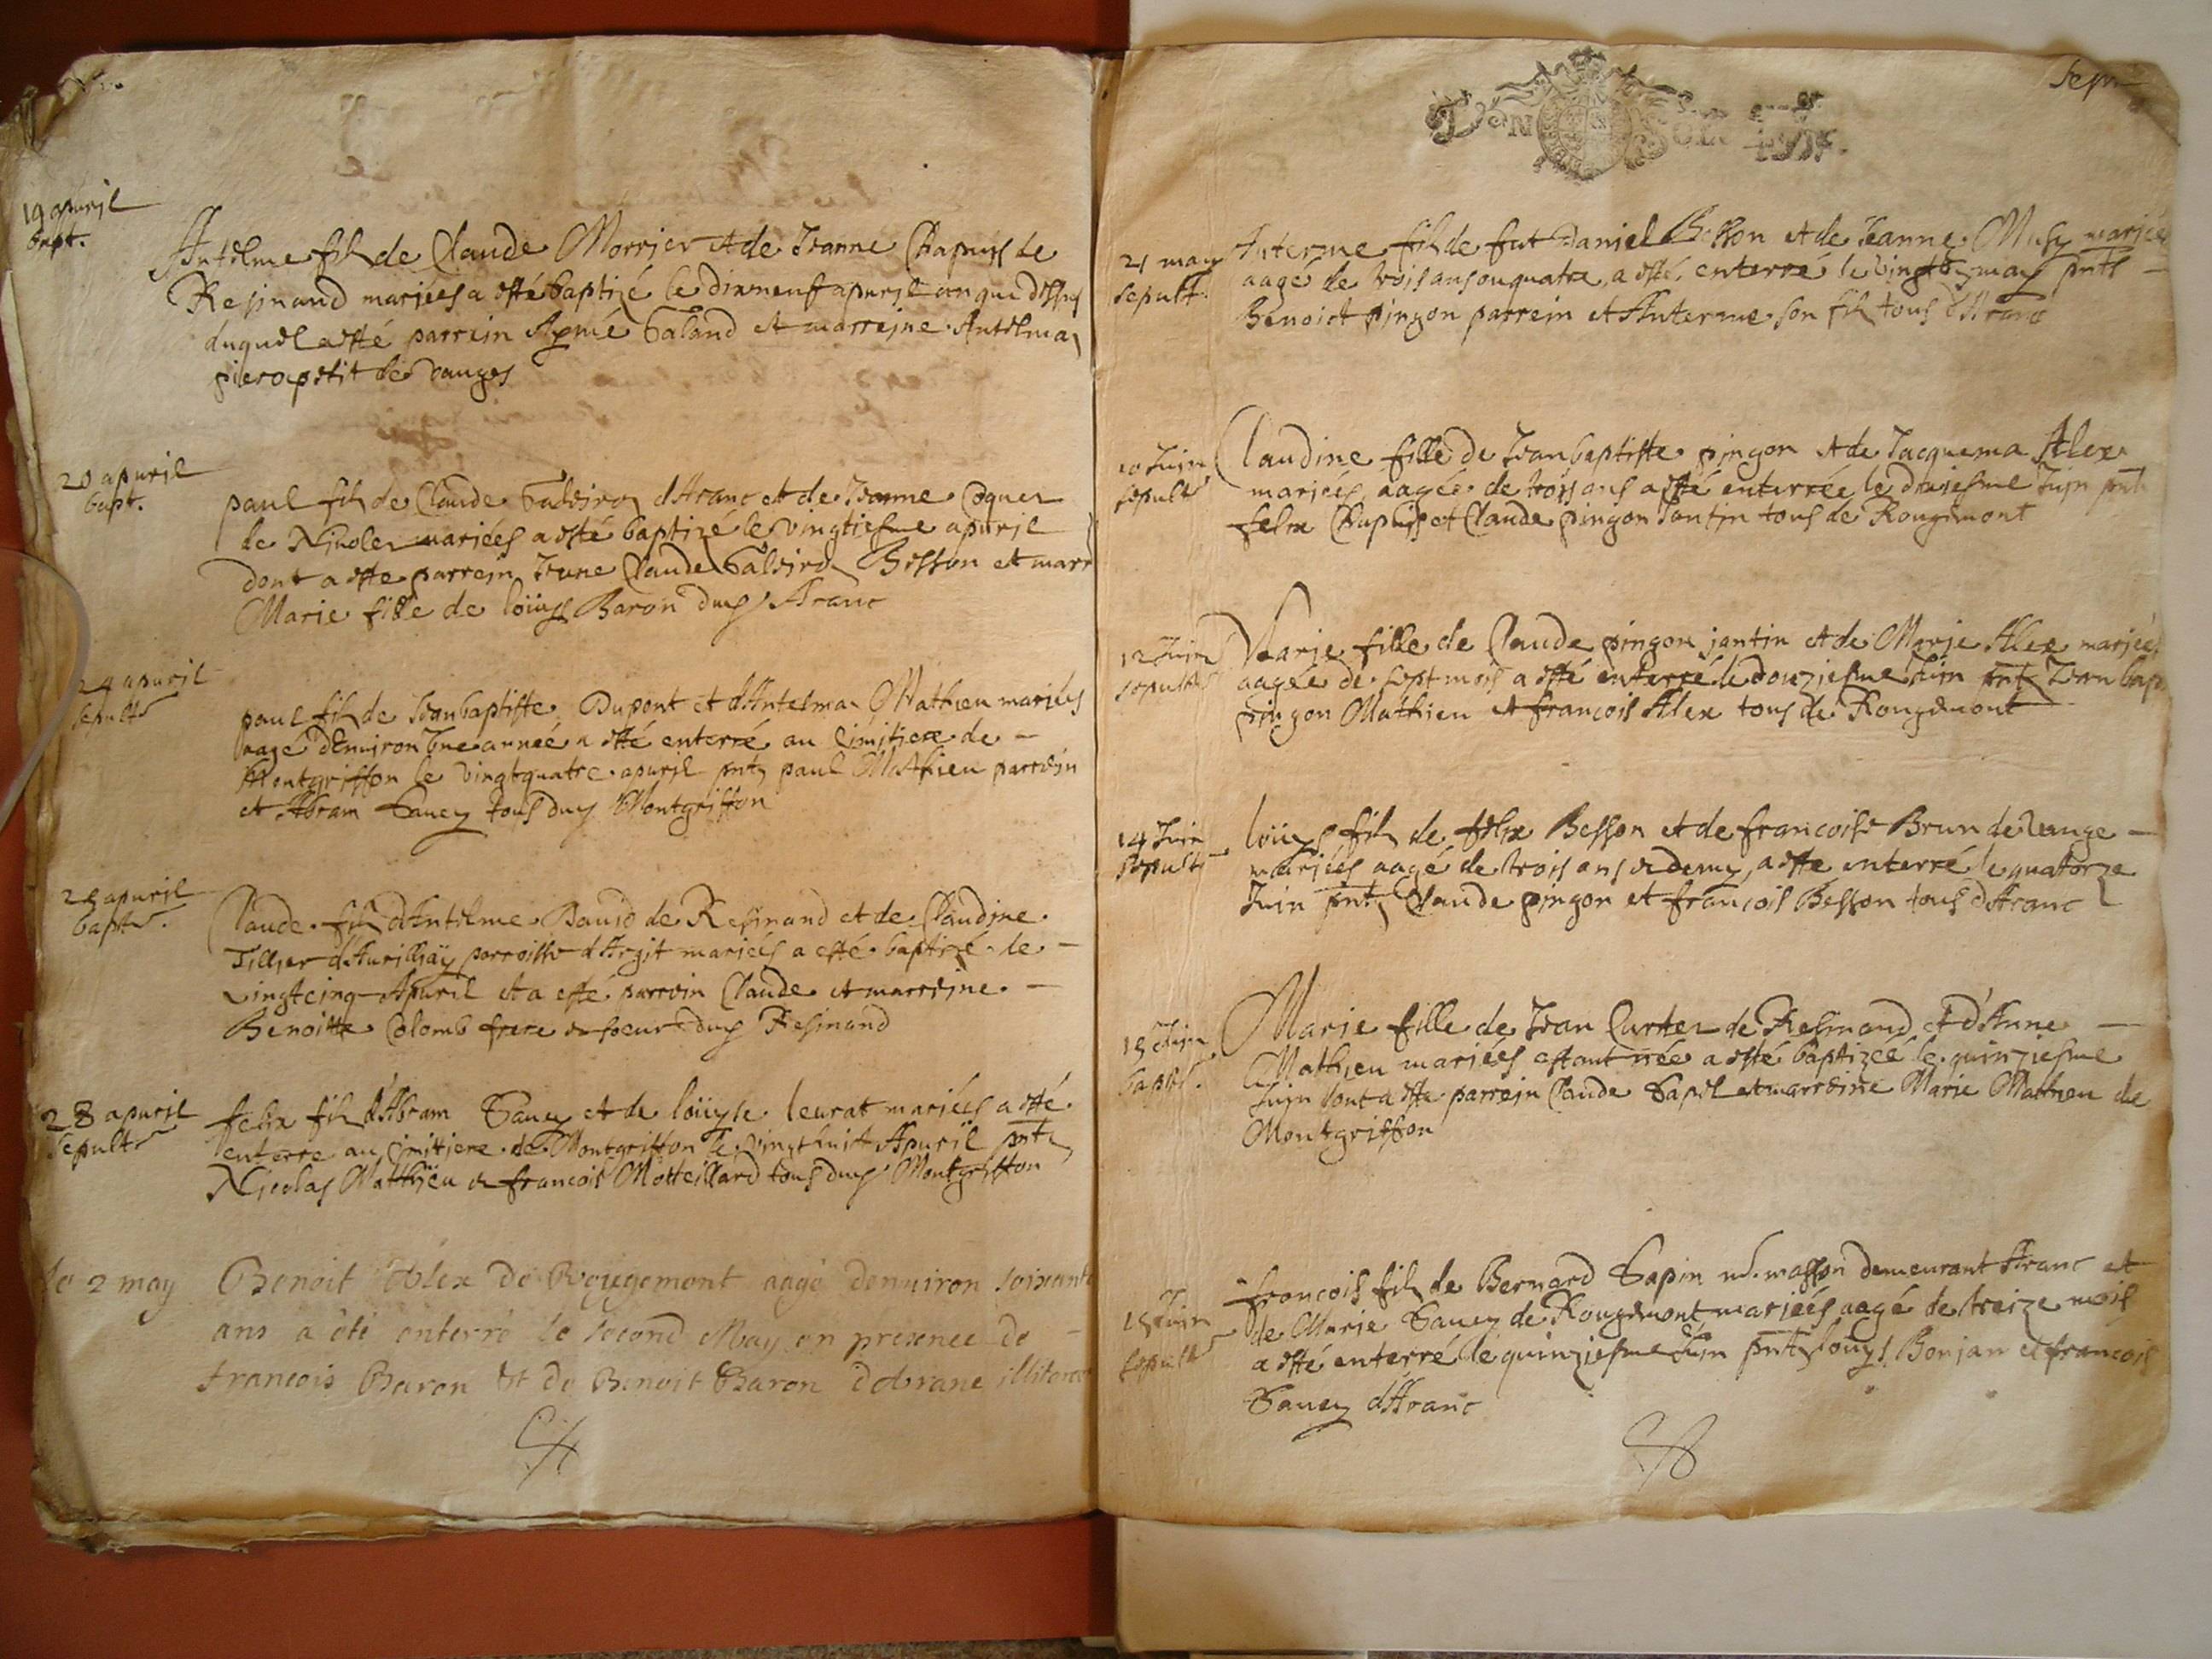 19 apuril
bapt.
Antelme fil de Claude Morrier et de Jeanne Chapuys de
Resinand mariees a esté baptizé le dixneuf apuril an que dessus
duquel a esté parrein Aymé Galand et marreine Antelma
petit de Vanges
20 apuril
bapt.
paul fil de Claude d'Aranc et de Jeanne
de mariées a esté baptizé le vingtiesme apuril
dont a esté parrein Claude Besson et marr
Marie fille de loüys Baron duy Aranc
24 apuril
sepult
paul fil de Jeanbaptiste Dupont et d'Antelma Mathieu mariées
aagé d'enuiron une année a esté enterré au Cimitiere de
Montgriffon le vingtquatre apuril pnts paul Mathieu parrein
et Abram Sauey tous duy Montgriffon
25 apuril
bapt.
Claude fil d'Antelme Dauid de Resinand et de Claudine
Tillier parroisse d'Argit mariées a esté baptizé le
vingtcinq Apuril et a esté parrein Claude et marreine
Benoitte Colomb frere & soeur duy Resinand
28 apuril
sepult
felix fil d'Abram Sauey et de loüyse leurat mariées a esté
enterre au Cimitiere de Montgriffon le vingt huict Apuril pnts
Nicolas Matthieu & francois Motteillard tous duy Montgriffon
le 2 may
Benoit Alex de Rougemont aagé denuiron soixante
ans a été enterré le second May en presence de
francois Baron et de Benoit Baron d'Aranc
Sepu
21 may
sepult.
Anterme fil de fut Daniel Besson et de Jeanne Musy mariées
aagé de trois ans ou quatre a esté enterré le vingt may pnts
Benoict pingon parrein et Anterme son fil tous d'Aranc
10 Juin
sepult
Claudine fille de Jeanbaptiste pingon et de Jacquema Alex
mariées aagée de trois ans a esté enterrée le dixiesme Juin pnts
felix Chapuys et Claude pingon Jantin tous de Rougemont
12 Juin
sepult
Marie fille de Claude pingon jantin et de Marie Alex mariées
aagée de sept mois a esté enterré le douziesme Juin pnts Jean bap
pingon Mathieu et francois Alex tous de Rougemont
14 Juin
sepult
loüys fil de felix Besson et de francoise Brun de
mariées aagé de trois ans & demy a esté enterré le quatorze
Juin pnts Claude pingon et francois Besson tous d'Aranc
15 Juin
bapt.
Marie fille de Jean Carter de Resinand et d'Anne
Mathieu mariées estant née a esté baptizée le quinziesme
Juin dont a esté parrein Claude Sapil et marreine Marie Mathieu de
Montgriffon
15 Juin
sepult
francois fil de Bernard Sapin masson demeurant Aranc et
de Marie Sauey de Rougemont mariées aagé de treize mois
a esté enterré le quinziesme Juin pnts louys Bonjan et francois
Sauey d'Aranc